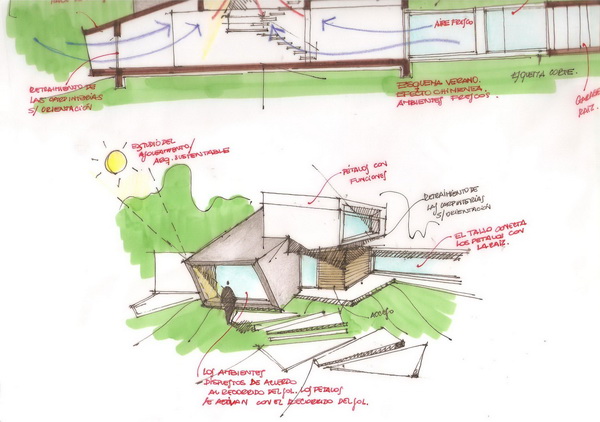 AIRE FRESCO
RETRAIMIENTO DE
LAS CARPINTERIAS
S/ORIENTACIÓN
ESQUEMA VERANO.
EFECTO CHIMENEA.
AMBIENTES FRESCOS.
ESQUEMA CORTE.
ESTUDIO DEL
ASOLEAMIENTO/
ARQ. SUSTENTABLE
PÉTALOS CON
FUNCIONES
RETRAIMIENTO DE
LAS CARPINTERÍAS
S/ORIENTACIÓN
EL TALLO CONECTA
LOS PÉTALOS CON
LA RAIZ.
ACCESO
LOS AMBIENTES
DISPUESTOS DE ACUERDO
AL RECORRIDO DEL SOL. LOS PÉTALOS
SE ABREN CON EL RECORRIDO DEL SOL.